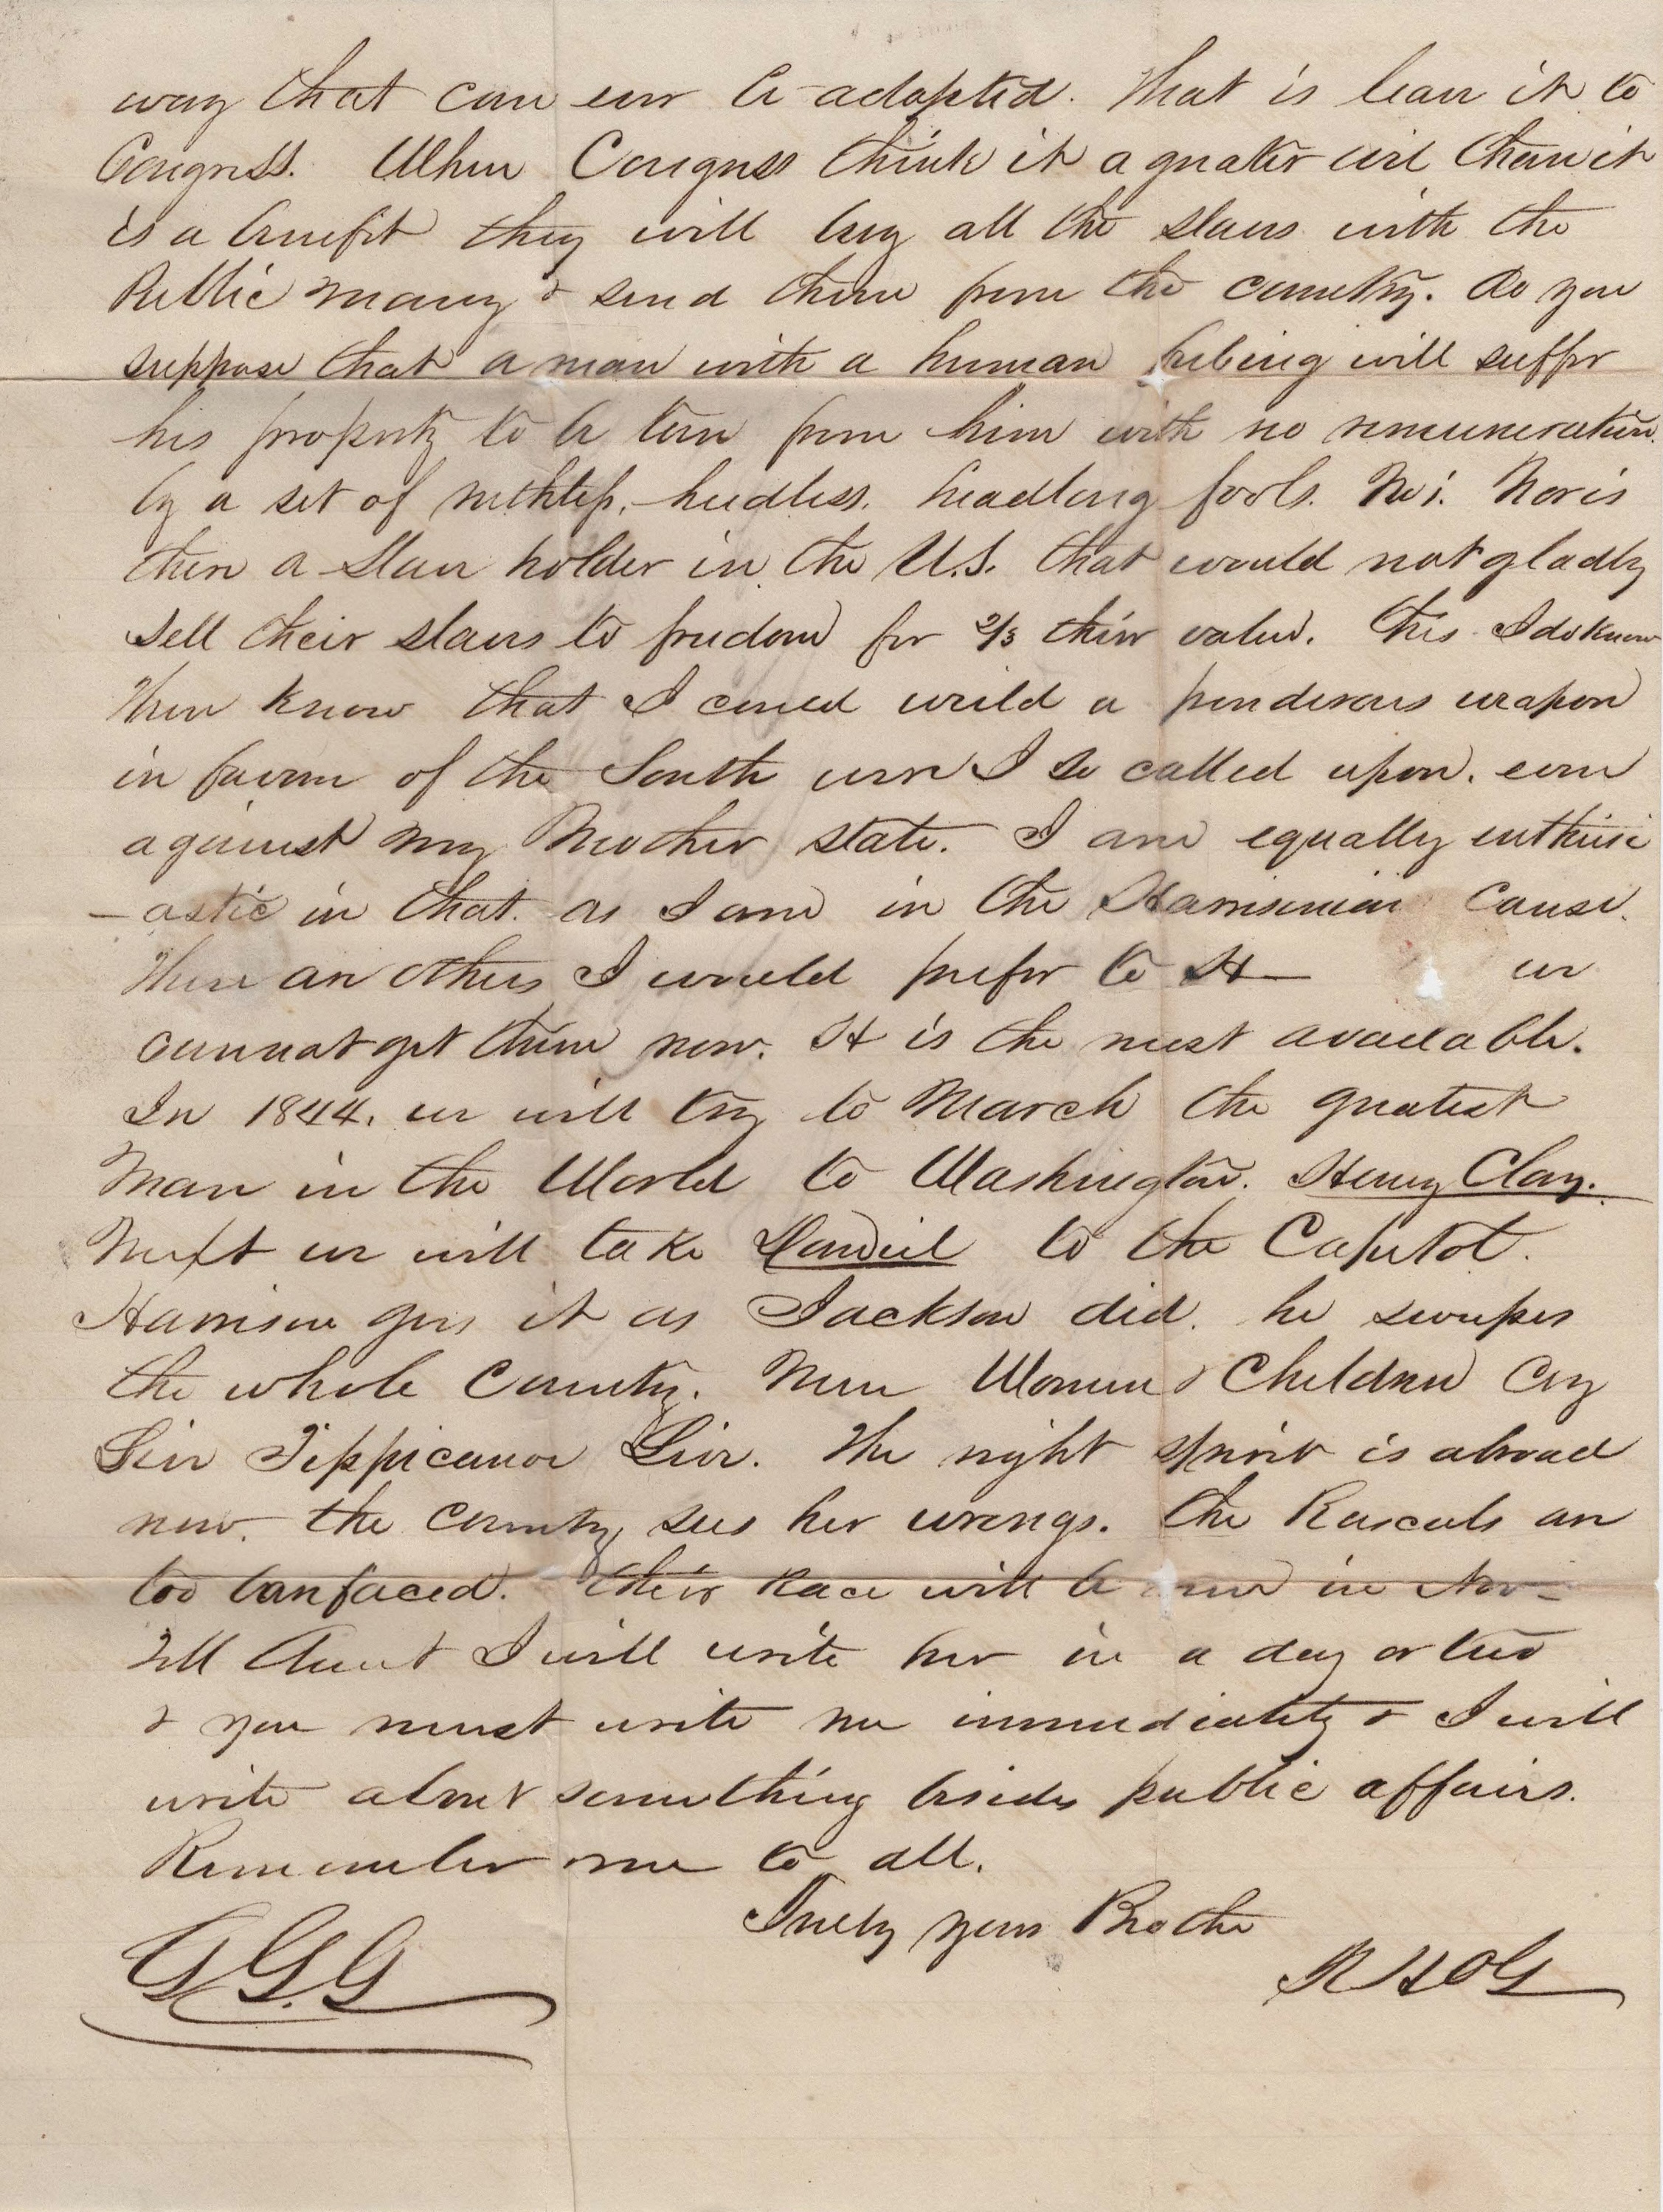 way that can ever be adopted. That is leave it to
Congress. When Congress think it a greater evil than it
is a benefit they will buy all the slaves with the
Public money & send them from the country. Do you
suppose that a man with a human feeling will suffer
his property to be torn from him with no remuneration
by a set of ruthless, heedless, headlong fools. No! Nor is
there a slave holder in the U.S. that would not gladly
sell their slaves to freedom for 2/3 their value. This I do know
Then know that I could wield a ponderous weapon
in favour of the South were I so called upon. even
against my Mother state. I am equally enthusi
-astic in that as I am in the Harrisonian Cause.
There are others I would prefer to H— we
cannot get them now. H is the most available.
In 1844. we will try to March the greatest
Man in the World to Washington. Henry Clay.
Next we will take Daniel to the Capitol.
Harrison goes it as Jackson did. he swoopes
the whole Country. Men Women & Children Cry
Live Tippicanoe Live. The right spirit is abroad
now. the Country sees her wrongs. the Rascals are
too barefaced. their Race will be run in Nov-
Tell Aunt I will write her in a day or two
& you must write me immediately & I will
write about something besides public affairs.
Remember me to all.
Truly your Brother
G.G.G